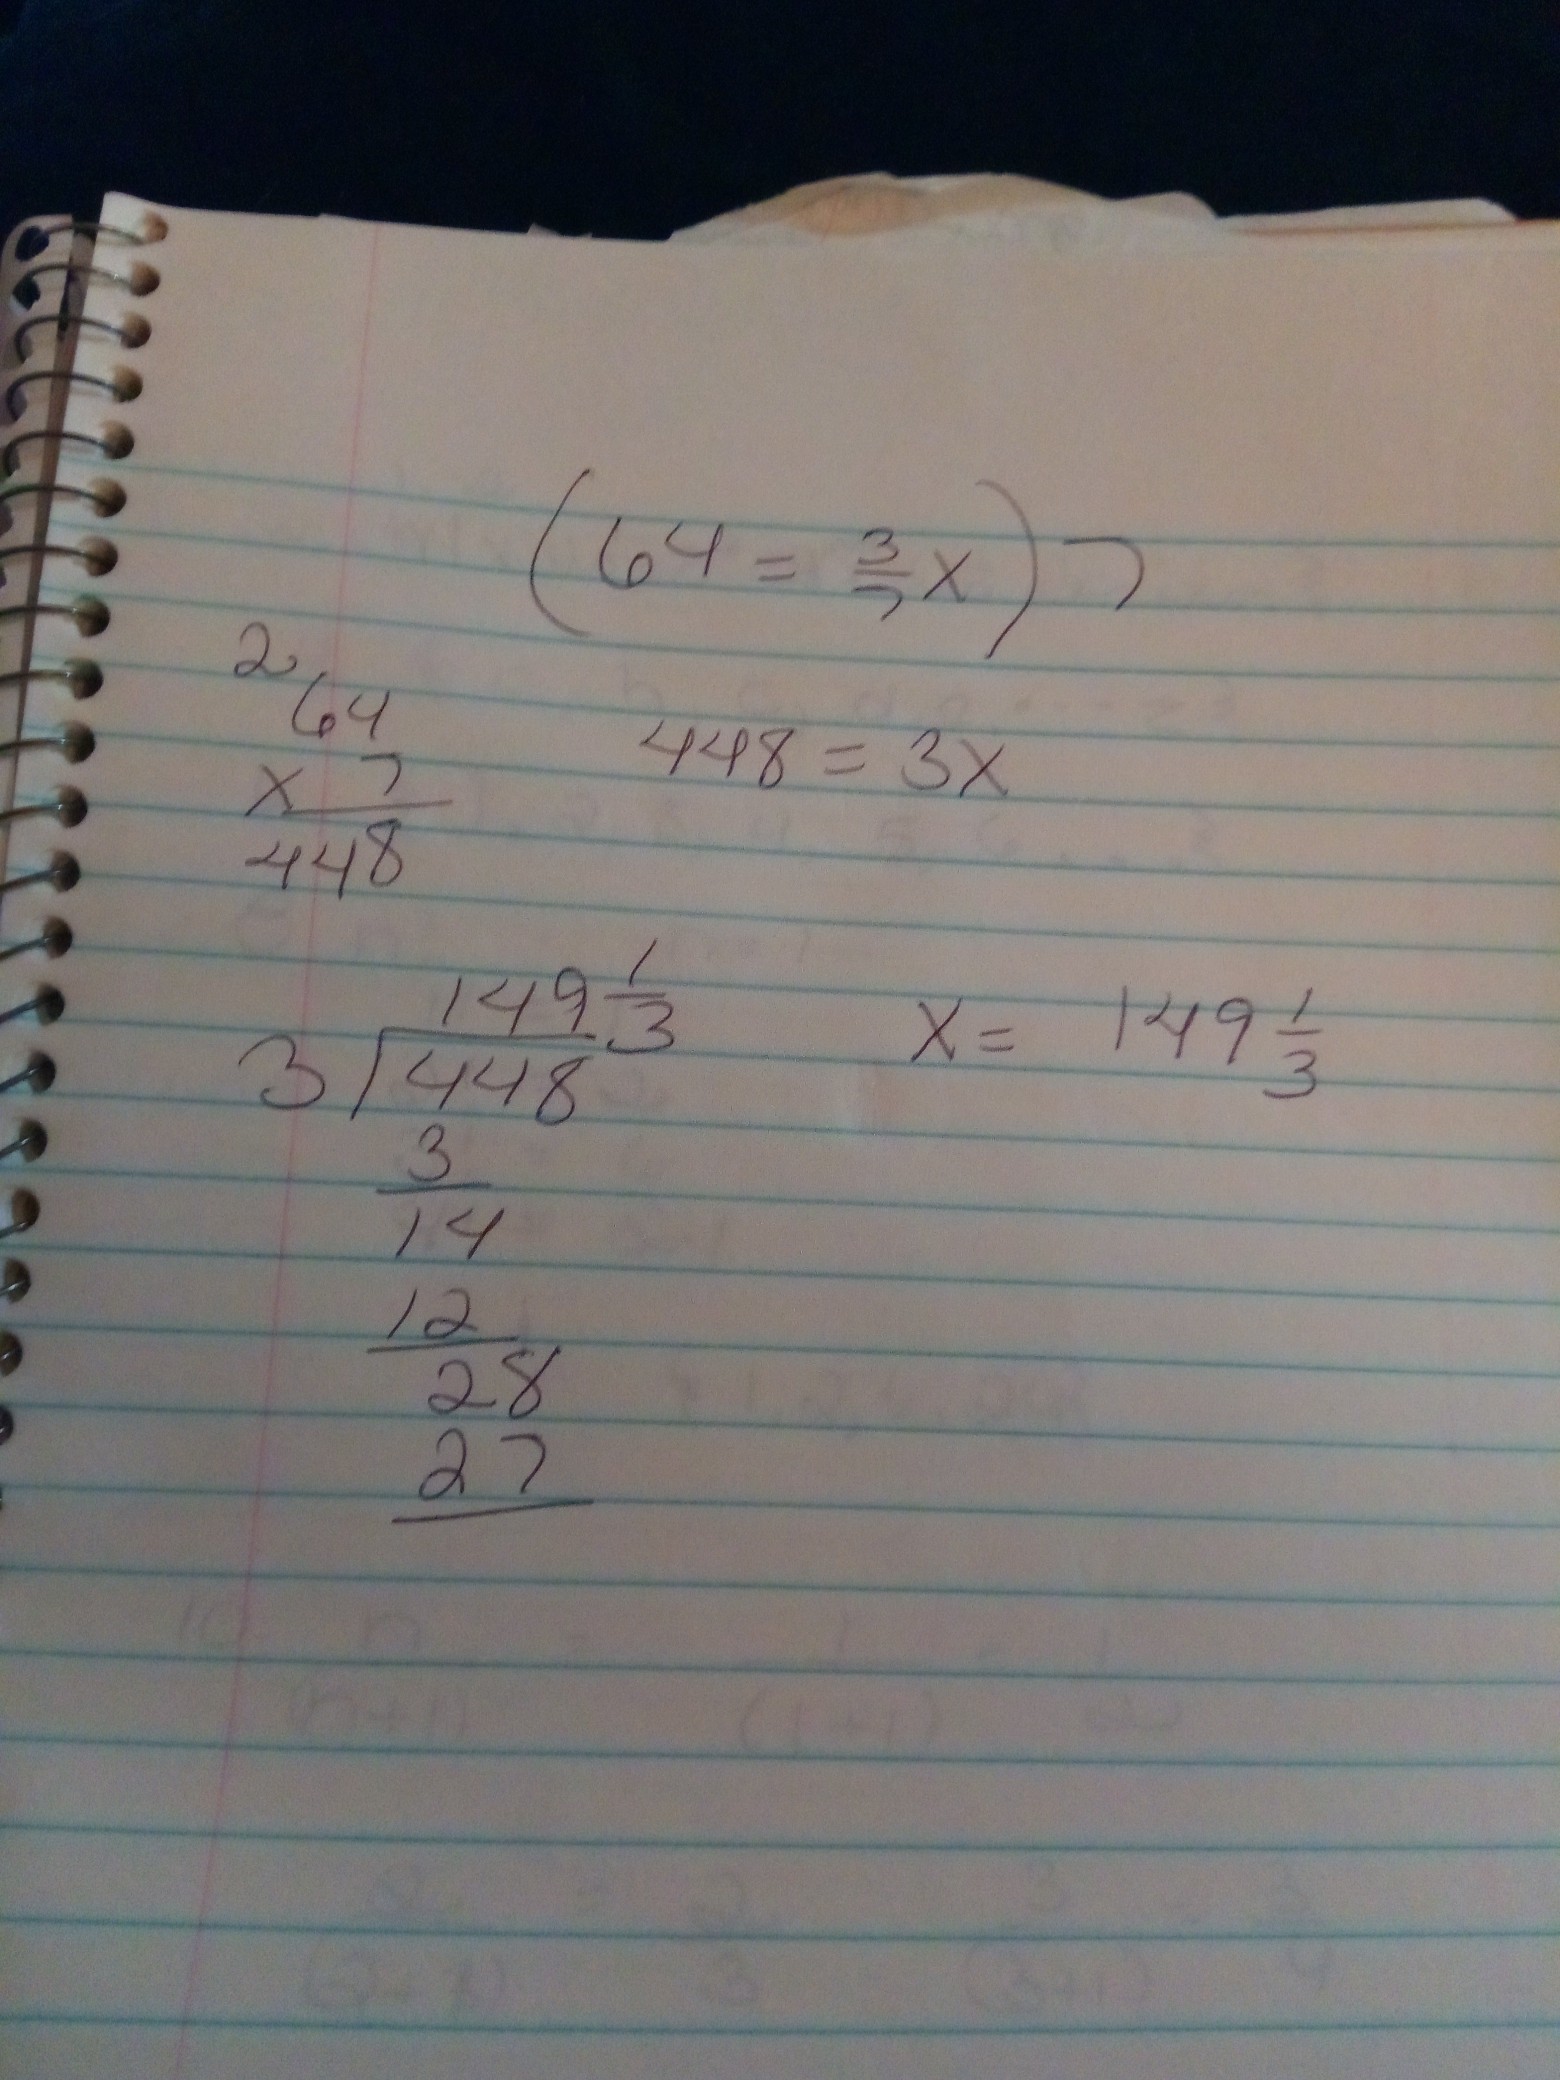 (64 = 3/7 x) 7
2
64
x 7
448
448 = 3x
149 1/3
3 448
3
14
12
28
27
x = 149 1/3